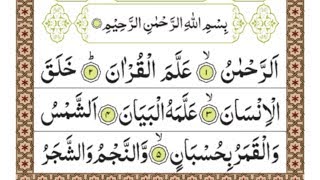 بِسْمِ اللهِ الرَّحْمٰنِ الرَّحِيْمِ
اَلرَّحْمٰنُ ۙ﴿۱﴾ عَلَّمَ الْقُرْاٰنَ ؕ﴿۲﴾ خَلَقَ
الْاِنْسَانَ ۙ﴿۳﴾ عَلَّمَهُ الْبَيَانَ ﴿۴﴾ اَلشَّمْسُ
وَالْقَمَرُ بِحُسْبَانٍ ۙ﴿۵﴾ وَّالنَّجْمُ وَالشَّجَرُ